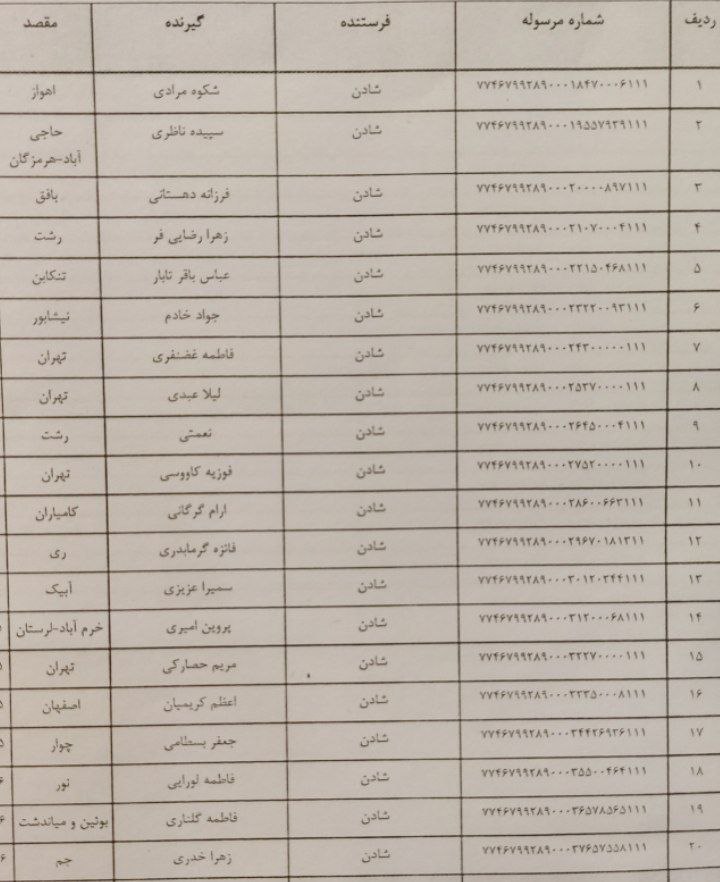 ردیف شماره مرسوله فرستنده گیرنده مقصد
۱ ۷۷۴۶۷۹۹۲۸۹۰۰۰۱۸۴۷۰۰۰۶۱۱۱ شادن شکوه مرادی اهواز
۲ ۷۷۴۶۷۹۹۲۸۹۰۰۰۱۹۵۵۷۹۳۹۱۱۱ شادن سپیده ناظری حاجی
آباد-هرمزگان
۳ ۷۷۴۶۷۹۹۲۸۹۰۰۰۲۰۰۰۰۸۹۷۱۱۱ شادن فرزانه دهستانی بافق
۴ ۷۷۴۶۷۹۹۲۸۹۰۰۰۲۱۰۷۰۰۰۴۱۱۱ شادن زهرا رضایی فر رشت
۵ ۷۷۴۶۷۹۹۲۸۹۰۰۰۲۲۱۵۰۴۶۸۱۱۱ شادن عباس باقر تابار تنکابن
۶ ۷۷۴۶۷۹۹۲۸۹۰۰۰۲۳۲۲۰۰۹۳۱۱۱ شادن جواد خادم نیشابور
۷ ۷۷۴۶۷۹۹۲۸۹۰۰۰۲۴۳۰۰۰۰۰۱۱۱ شادن فاطمه غضنفری تهران
۸ ۷۷۴۶۷۹۹۲۸۹۰۰۰۲۵۳۷۰۰۰۰۱۱۱ شادن لیلا عبدی تهران
۹ ۷۷۴۶۷۹۹۲۸۹۰۰۰۲۶۴۵۰۰۰۴۱۱۱ شادن نعمتی رشت
۱۰ ۷۷۴۶۷۹۹۲۸۹۰۰۰۲۷۵۲۰۰۰۰۱۱۱ شادن فوزیه کاووسی تهران
۱۱ ۷۷۴۶۷۹۹۲۸۹۰۰۰۲۸۶۰۰۶۶۳۱۱۱ شادن ارام گرگانی کامیاران
۱۲ ۷۷۴۶۷۹۹۲۸۹۰۰۰۲۹۶۷۰۱۸۱۳۱۱ شادن فائزه گرمابدری ری
۱۳ ۷۷۴۶۷۹۹۲۸۹۰۰۰۳۰۱۲۰۳۴۴۱۱۱ شادن سمیرا عزیزی آبیک
۱۴ ۷۷۴۶۷۹۹۲۸۹۰۰۰۳۱۲۰۰۰۶۸۱۱۱ شادن پروین امیری خرم آباد-لرستان
۱۵ ۷۷۴۶۷۹۹۲۸۹۰۰۰۳۲۲۷۰۰۰۰۱۱۱ شادن مریم حصارکی تهران
۱۶ ۷۷۴۶۷۹۹۲۸۹۰۰۰۳۳۳۵۰۰۰۸۱۱۱ شادن اعظم کریمیان اصفهان
۱۷ ۷۷۴۶۷۹۹۲۸۹۰۰۰۳۴۴۲۶۹۳۶۱۱۱ شادن جعفر بسطامی چوار
۱۸ ۷۷۴۶۷۹۹۲۸۹۰۰۰۳۵۵۰۰۴۶۴۱۱۱ شادن فاطمه لورایی نور
۱۹ ۷۷۴۶۷۹۹۲۸۹۰۰۰۳۶۵۷۸۵۶۵۱۱۱ شادن فاطمه گلناری بوئین و میاندشت
۲۰ ۷۷۴۶۷۹۹۲۸۹۰۰۰۳۷۶۵۷۵۵۸۱۱۱ شادن زهرا خدری جم